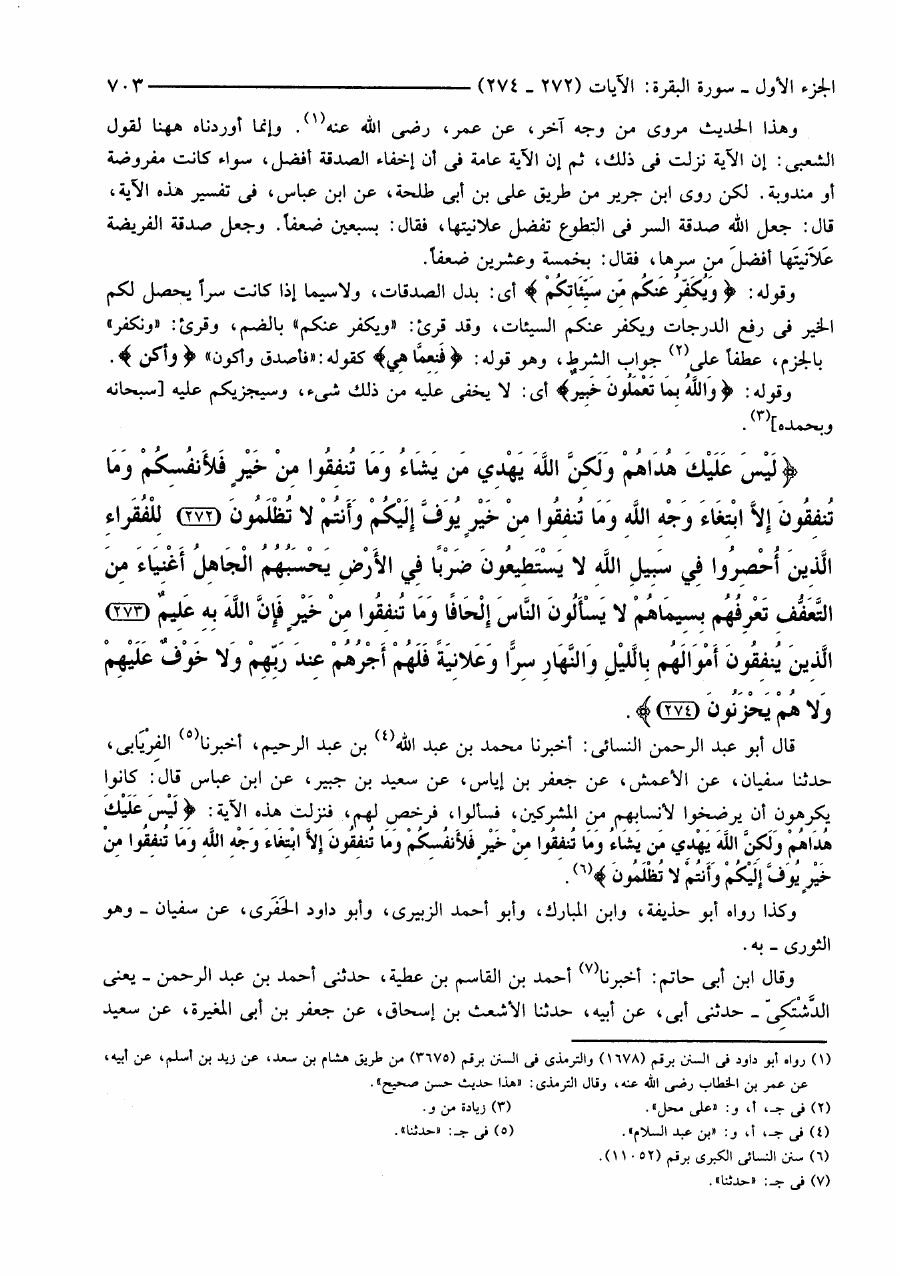 الجزء الأول ـ سورة البقرة: الآيات (٢٧٢ ـ ٢٧٤) ٧٠٣
وهذا الحديث مروى من وجه آخر، عن عمر، رضى الله عنه(١). وإنما أوردناه ههنا لقول
الشعبى: إن الآية نزلت فى ذلك، ثم إن الآية عامة فى أن إخفاء الصدقة أفضل، سواء كانت مفروضة
أو مندوبة. لكن روى ابن جرير من طريق على بن أبى طلحة، عن ابن عباس، فى تفسير هذه الآية،
قال: جعل الله صدقة السر فى التطوع تفضل علانيتها، فقال: بسبعين ضعفاً. وجعل صدقة الفريضة
عَلاَنيَتَها أفضلَ من سرها، فقال: بخمسة وعشرين ضعفاً.
وقوله: ﴿ وَيُكَفِّرُ عَنكُم مِّن سَيِّئَاتِكُمْ ﴾ أى: بدل الصدقات، ولاسيما إذا كانت سراً يحصل لكم
الخير فى رفع الدرجات ويكفر عنكم السيئات، وقد قرئ: «ويكفر عنكم» بالضم، وقرئ: «ونكفر»
بالجزم، عطفاً على(٢) جواب الشرط، وهو قوله: ﴿ فَنِعِمَّا هِيَ﴾ كقوله:«فأصدق وأكون» ﴿ وأكن ﴾.
وقوله: ﴿ وَاللَّهُ بِمَا تَعْمَلُونَ خَبِيرٌ﴾ أى: لا يخفى عليه من ذلك شىء، وسيجزيكم عليه [سبحانه
وبحمده](٣).
﴿ لَيْسَ عَلَيْكَ هُدَاهُمْ وَلَكِنَّ اللَّهَ يَهْدِي مَن يَشَاءُ وَمَا تُنفِقُوا مِنْ خَيْرٍ فَلأَنفُسِكُمْ وَمَا
تُنفِقُونَ إِلاَّ ابْتِغَاءَ وَجْهِ اللَّهِ وَمَا تُنفِقُوا مِنْ خَيْرٍ يُوَفَّ إِلَيْكُمْ وَأَنتُمْ لا تُظْلَمُونَ (٢٧٢) لِلْفُقَرَاءِ
الَّذِينَ أُحْصِرُوا فِي سَبِيلِ اللَّهِ لا يَسْتَطِيعُونَ ضَرْبًا فِي الأَرْضِ يَحْسَبُهُمُ الْجَاهِلُ أَغْنِيَاءَ مِنَ
التَّعَفُّفِ تَعْرِفُهُم بِسِيمَاهُمْ لا يَسْأَلُونَ النَّاسَ إِلْحَافًا وَمَا تُنفِقُوا مِنْ خَيْرٍ فَإِنَّ اللَّهَ بِهِ عَلِيمٌ (٢٧٣)
الَّذِينَ يُنفِقُونَ أَمْوَالَهُم بِاللَّيْلِ وَالنَّهَارِ سِرًّا وَعَلانِيَةً فَلَهُمْ أَجْرُهُمْ عِندَ رَبِّهِمْ وَلا خَوْفٌ عَلَيْهِمْ
وَلا هُمْ يَحْزَنُونَ (٢٧٤) ﴾.
قال أبو عبد الرحمن النسائى: أخبرنا محمد بن عبد الله(٤) بن عبد الرحيم، أخبرنا(٥) الفِرْيَابى،
حدثنا سفيان، عن الأعمش، عن جعفر بن إياس، عن سعيد بن جبير، عن ابن عباس قال: كانوا
يكرهون أن يرضخوا لأنسابهم من المشركين، فسألوا، فرخص لهم، فنزلت هذه الآية: ﴿ لَيْسَ عَلَيْكَ
هُدَاهُمْ وَلَكِنَّ اللَّهَ يَهْدِي مَن يَشَاءُ وَمَا تُنفِقُوا مِنْ خَيْرٍ فَلأَنفُسِكُمْ وَمَا تُنفِقُونَ إِلاَّ ابْتِغَاءَ وَجْهِ اللَّهِ وَمَا تُنفِقُوا مِنْ
خَيْرٍ يُوَفَّ إِلَيْكُمْ وَأَنتُمْ لا تُظْلَمُونَ ﴾(٦).
وكذا رواه أبو حذيفة، وابن المبارك، وأبو أحمد الزبيرى، وأبو داود الحَفَرى، عن سفيان ـ وهو
الثورى ـ به.
وقال ابن أبى حاتم: أخبرنا(٧) أحمد بن القاسم بن عطية، حدثنى أحمد بن عبد الرحمن ـ يعنى
الدَّشْتَكِىّ ـ حدثنى أبى، عن أبيه، حدثنا الأشعث بن إسحاق، عن جعفر بن أبى المغيرة، عن سعيد
(١) رواه أبو داود فى السنن برقم (١٦٧٨) والترمذى فى السنن برقم (٣٦٧٥) من طريق هشام بن سعد، عن زيد بن أسلم، عن أبيه،
عن عمر بن الخطاب رضى الله عنه، وقال الترمذى: «هذا حديث حسن صحيح».
(٢) فى جـ، أ، و: «على محل». (٣) زيادة من و.
(٤) فى جـ، أ، و: «بن عبد السلام». (٥) فى جـ: «حدثنا».
(٦) سنن النسائى الكبرى برقم (١١٠٥٢).
(٧) فى جـ: «حدثنا».